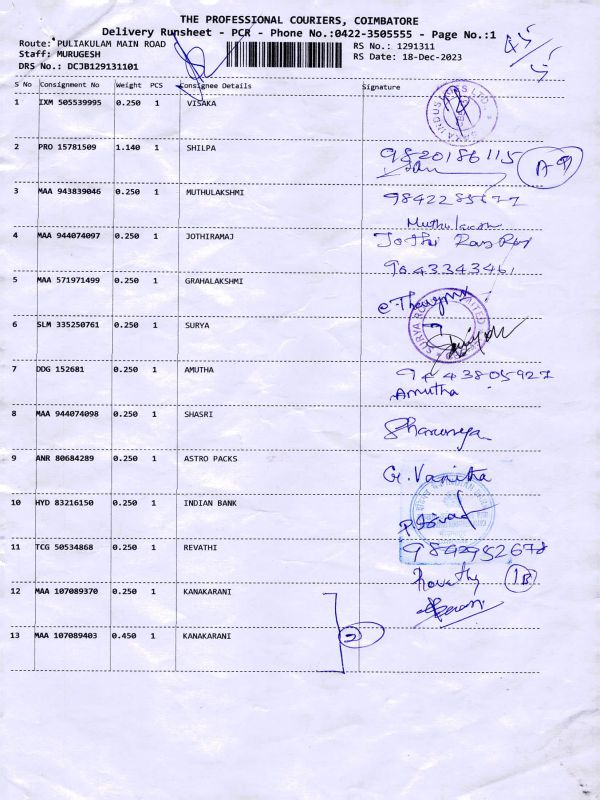 THE PROFESSIONAL COURIERS, COIMBATORE
Delivery Runsheet - PCR - Phone No.:0422-3505555 - Page No.:1
Route: PULIAKULAM MAIN ROAD
RS No.: 1291311
Staff: MURUGESH
RS Date: 18-Dec-2023
DRS No.: DCJB129131101
S No Consignment No Weight PCS Consignee Details Signature
1 IXM 505539995 0.250 1 VISAKA
2 PRO 15781509 1.140 1 SHILPA
9820186115
3 MAA 943839046 0.250 1 MUTHULAKSHMI
4 MAA 944074097 0.250 1 JOTHIRAMAJ
9043343461
5 MAA 571971499 0.250 1 GRAHALAKSHMI
6 SLM 335250761 0.250 1 SURYA
7 DDG 152681 0.250 1 AMUTHA
9443805927
Amutha
8 MAA 944074098 0.250 1 SHASRI
9 ANR 80684289 0.250 1 ASTRO PACKS
G. Vanitha
10 HYD 83216150 0.250 1 INDIAN BANK
11 TCG 50534868 0.250 1 REVATHI
9842952678
Revathy
12 MAA 107089370 0.250 1 KANAKARANI
13 MAA 107089403 0.450 1 KANAKARANI
2